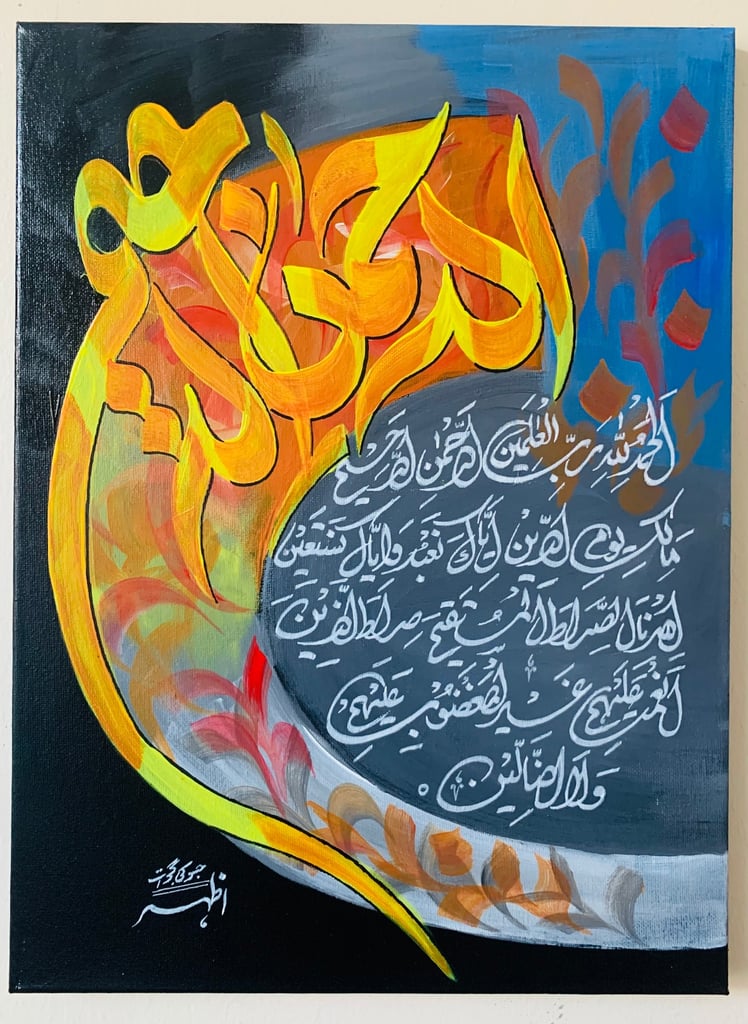 الرحمن الرحيم
اَلحَمدُ لِلّٰهِ رَبِّ العٰلَمِين الرَّحمٰنِ الرَّحِيم
مَالِكِ يَومِ الدِّين اِيَّاكَ نَعبُدُ وَاِيَّاكَ نَستَعِين
اِهدِنَا الصِّرَاطَ المُستَقِيمَ صِرَاطَ الَّذِينَ
اَنعَمتَ عَلَيهِم غَيرِ المَغضُوبِ عَلَيهِم
وَلَا الضَّالِّين
اظہر